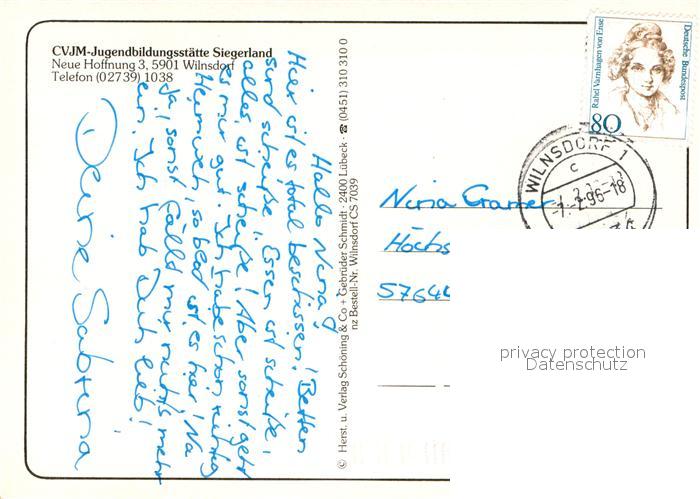 CVJM-Jugendbildungsstätte Siegerland
Neue Hoffnung 3, 5901 Wilnsdorf
Telefon (02739) 1038
Hallo Nina!
Hier ist es total beschissen! Betten
sind scheiße, Essen ist scheiße,
alles ist scheiße! Aber sonst geht
es mir gut. Ich habe schon richtig
Heimweh, so blöd ist es hier! Na
ja, sonst fällt mir nichts mehr
ein. Ich hab Dich lieb!
Deine Sabrina
© Herst. u. Verlag Schöning & Co + Gebrüder Schmidt · 2400 Lübeck · ☎ (0451) 310 310 0
nz Bestell-Nr. Wilnsdorf CS 7039
Rahel Varnhagen von Ense
Deutsche Bundespost
80
WILNSDORF 1
c
-7.2.96-18
Nina Cramer
Höchs
5764
privacy protection
Datenschutz